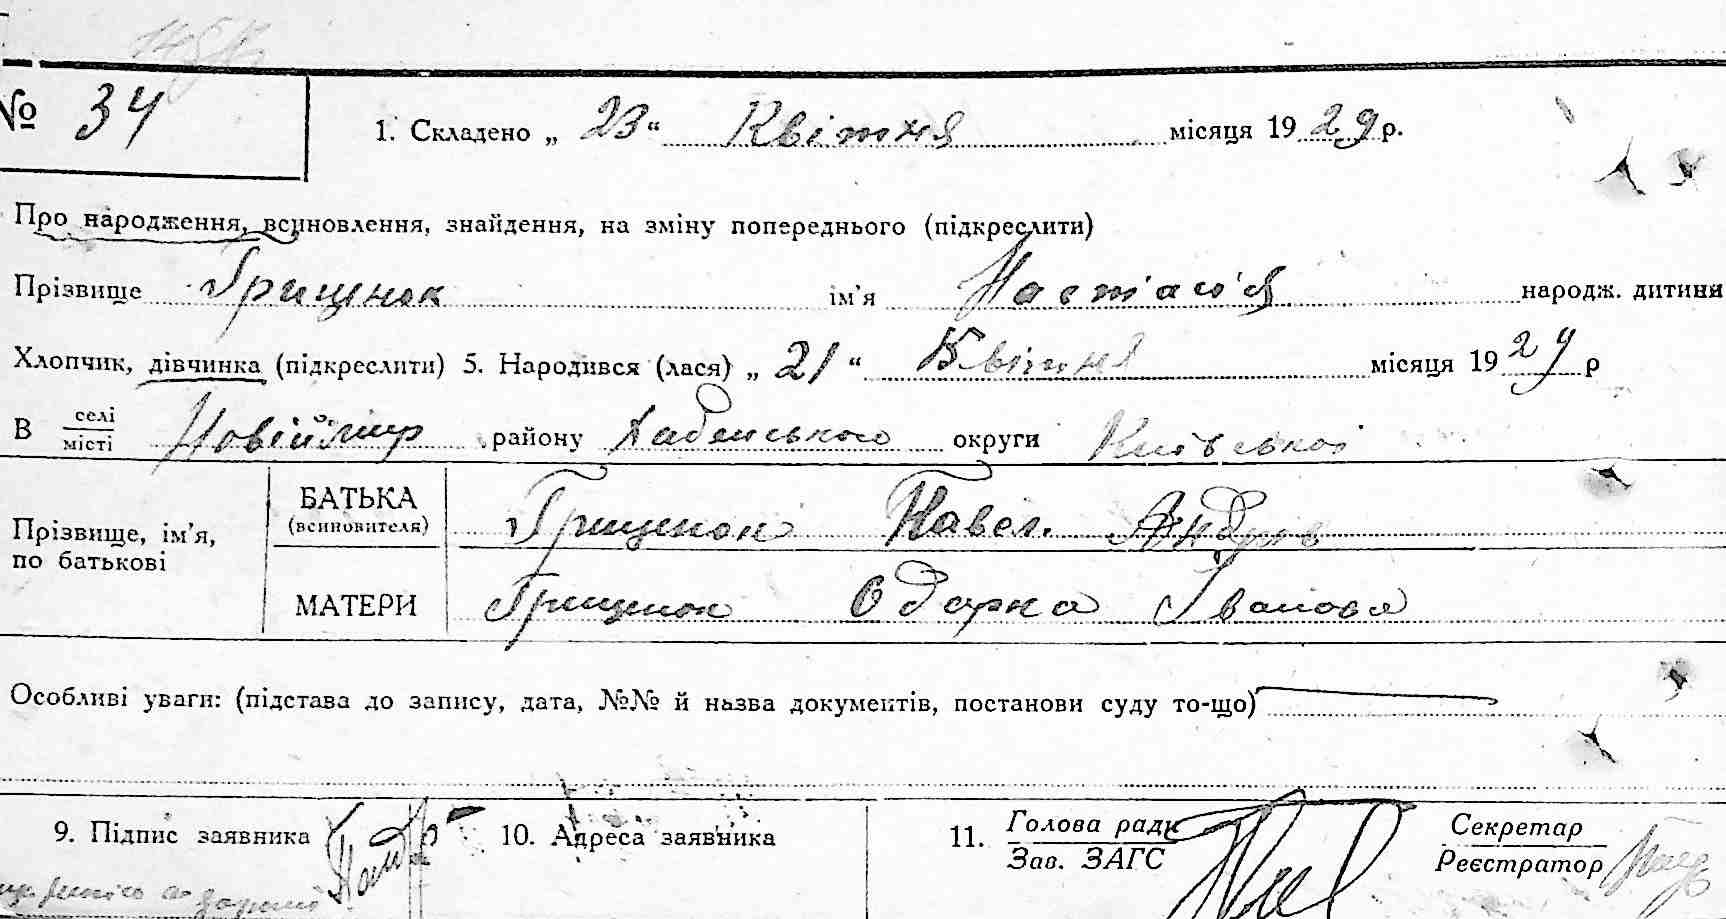 № 34
1. Складено „ 23 “ Квітня місяця 19 29 р.
Про народження, всиновлення, знайдення, на зміну попереднього (підкреслити)
Прізвище Грищнок ім'я Настас'я народж. дитини
Хлопчик, дівчинка (підкреслити) 5. Народився (лася) „ 21 “ Квітня місяця 19 29 р
В селі/місті району округи Київської
Прізвище, ім'я, по батькові
БАТЬКА (всиновителя) Павел.
МАТЕРИ Одарка Іванова
Особливі уваги: (підстава до запису, дата, №№ й назва документів, постанови суду то-що)
9. Підпис заявника 10. Адреса заявника 11. Голова ради Секретар
Зав. ЗАГС Реєстратор